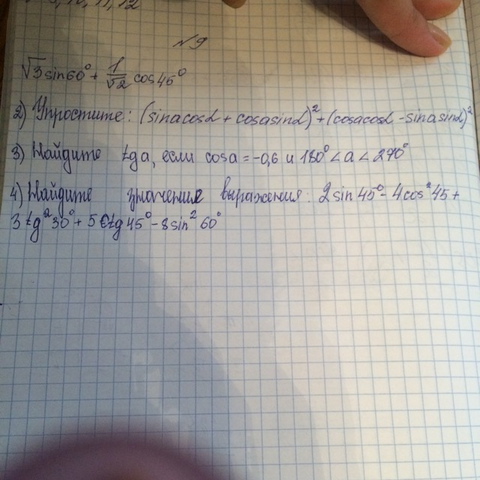 №9
√3 sin60° + 1/√2 cos45°
2) Упростите: (sinacosα + cosasinα)² + (cosacosα - sinasinα)²
3) Найдите tga, если cosa = -0,6 и 180° < a < 270°
4) Найдите значения выражения: 2sin45° - 4cos²45 +
3tg²30° + 5ctg45° - 8sin²60°